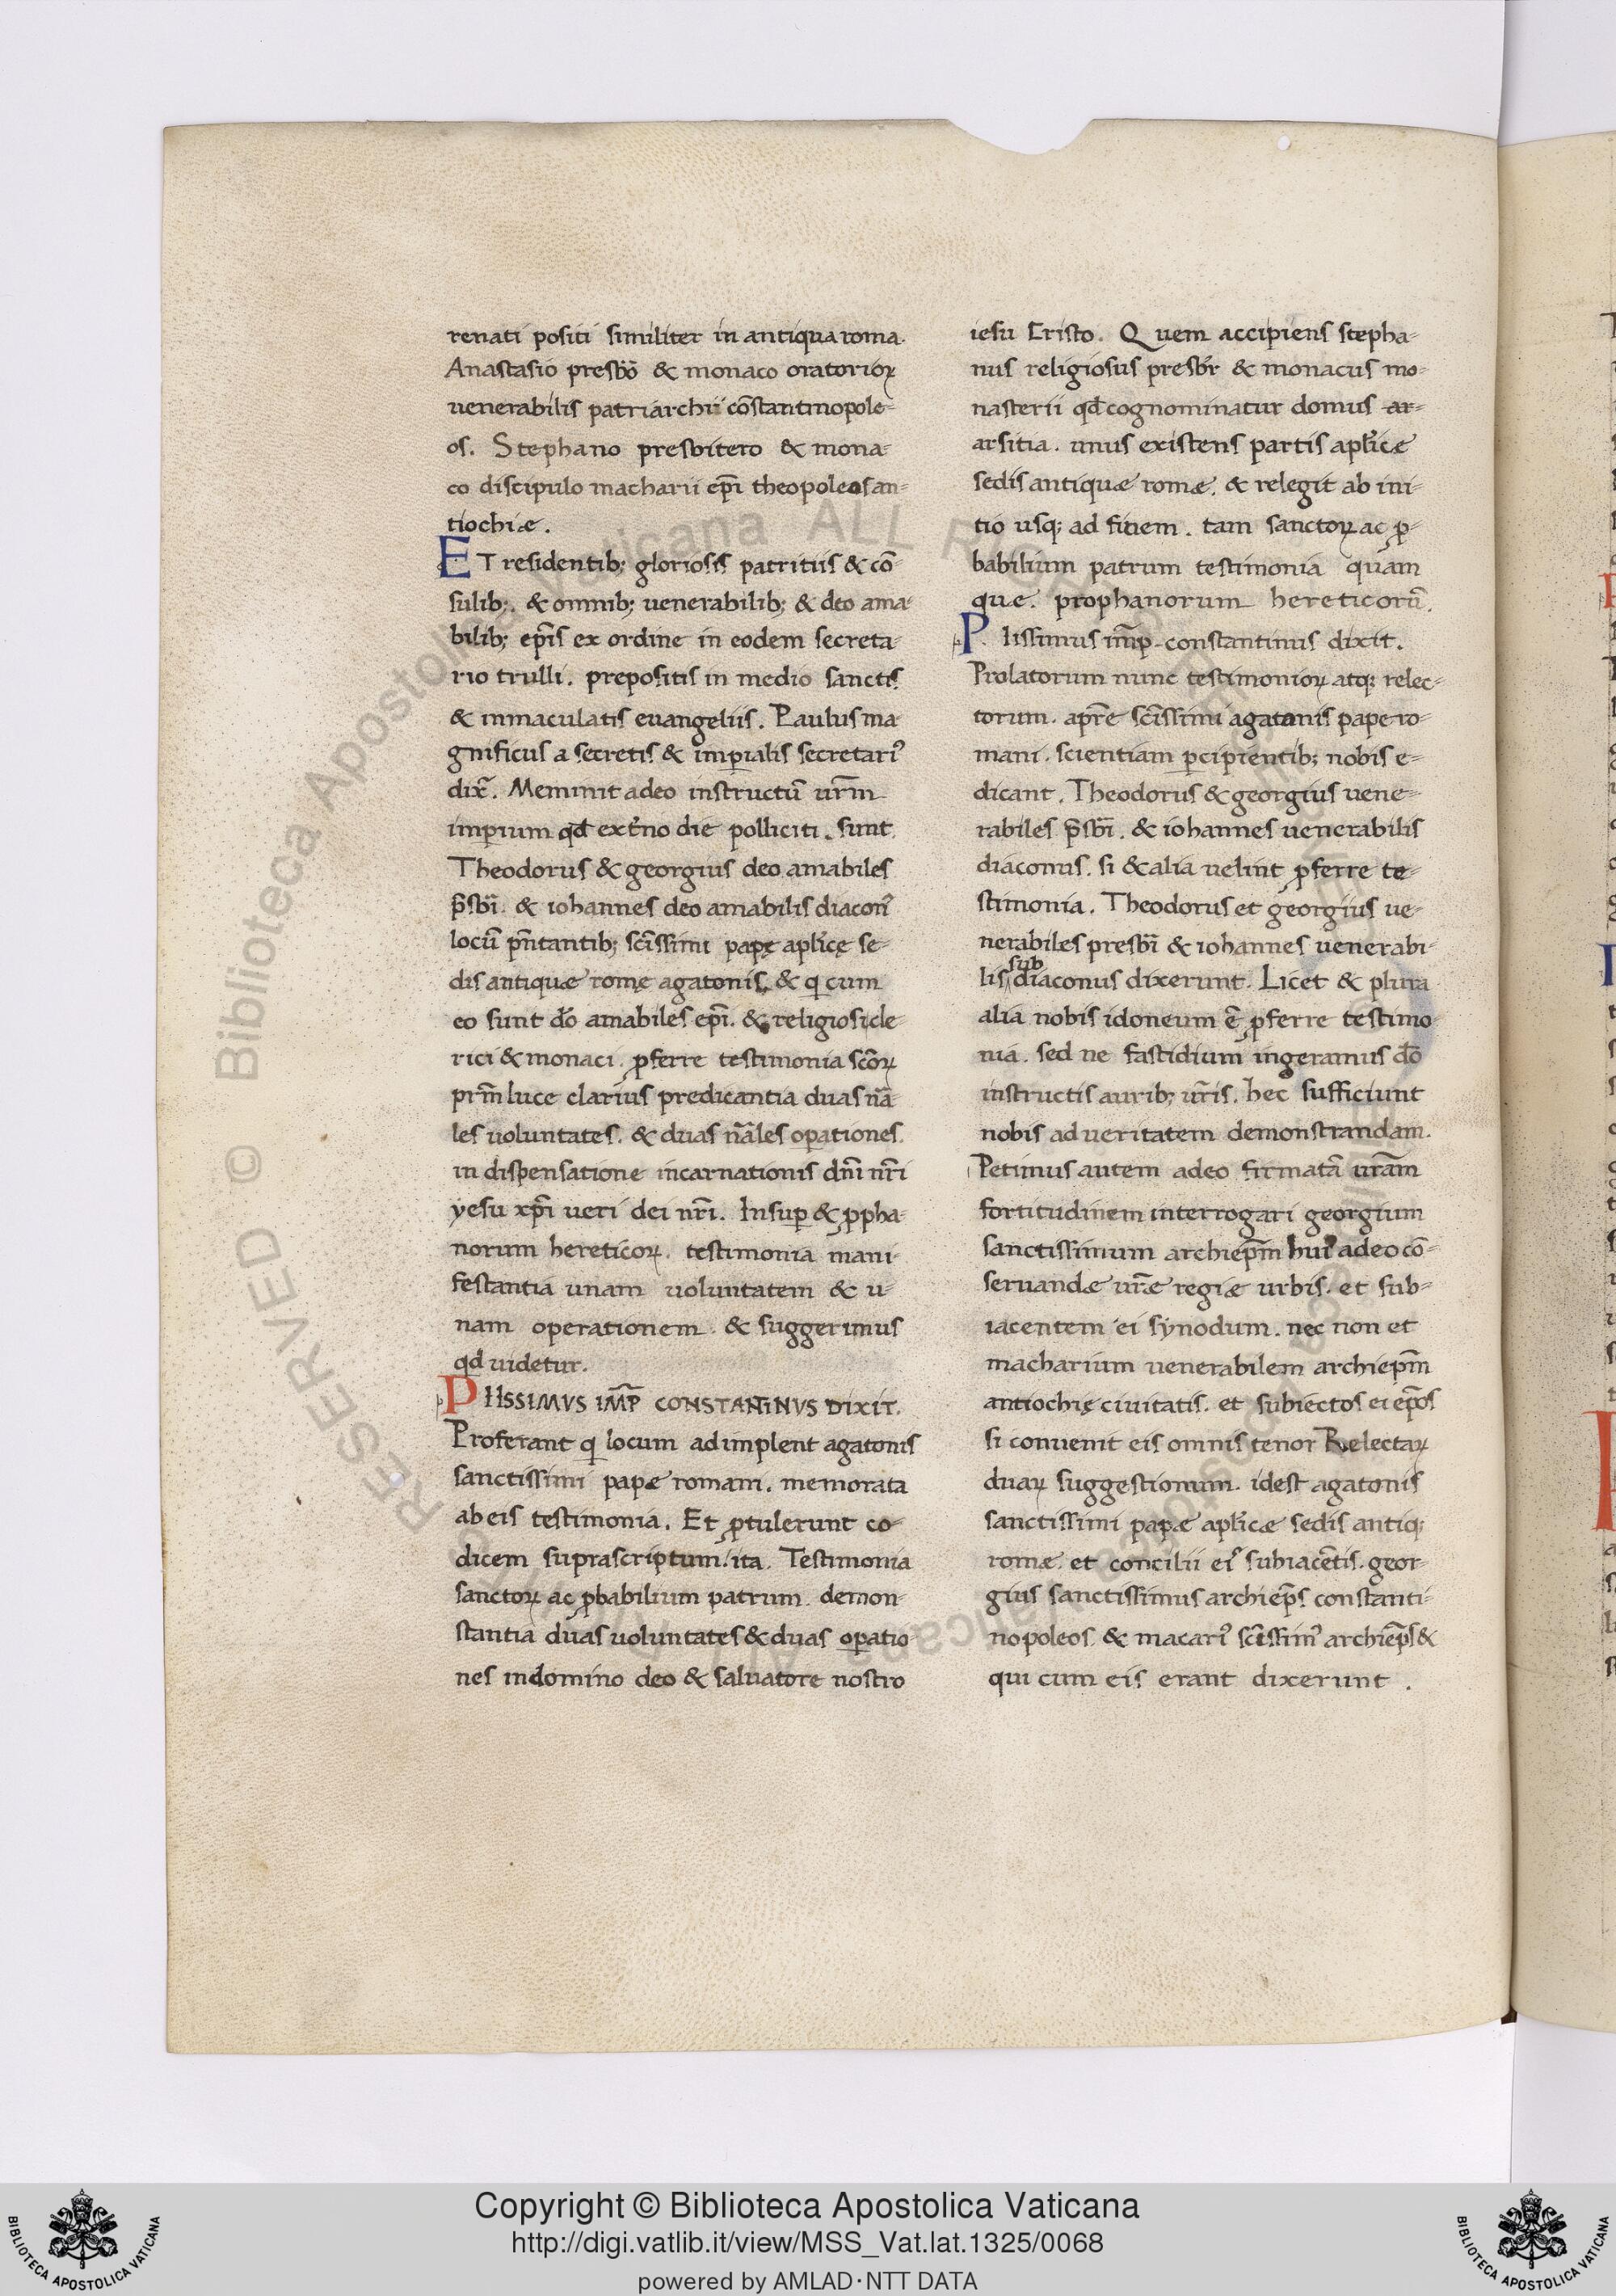 renati positi similiter in antiqua roma.
Anastasio presb̄o & monaco oratorioꝝ
uenerabilis patriarchii cōstantinopole-
os. Stephano presbitero & mona-
co discipulo macharii ep̄i theopoleos an-
tiochiæ.
ET residentib; gloriosis patritiis & cō-
sulib;. & omnib; uenerabilib; & deo ama-
bilib; ep̄is ex ordine in eodem secreta-
rio trulli. prepositis in medio sanctis
& inmaculatis euangeliis. Paulus ma-
gnificus a secretis & imꝑialis secretariꝰ
dix̄. Meminit adeo instructū ur̄m
imꝑium qd̄ ext̓no die polliciti. sunt
Theodorus & georgius deo amabiles
p̄sbi. & iohannes deo amabilis diaconꝰ
locū p̄ntantib; sc̄issimi papę apl̓icę se-
dis antiquæ romę agatonis. & q̄ cum
eo sunt d̄o amabiles ep̄i. & religiosi cle-
rici & monaci. ꝓferre testimonia sc̄oꝝ
pr̄m luce clarius predicantia duas nā-
les uoluntates. & duas nāles oꝑationes.
in dispensatione incarnationis dn̄i nr̄i
yesu xp̄i ueri dei nr̄i. Insuꝑ & ꝓpha-
norum hereticoꝝ. testimonia mani-
festantia unam uoluntatem & u-
nam operationem. & suggerimus
qd̄ uidetur.
PIISSIMVS IMP̄ CONSTANTINVS DIXIT.
Proferant q̄ locum adimplent agatonis
sanctissimi papæ romani. memorata
ab eis testimonia. Et ꝓtulerunt co-
dicem suprascriptum. ita. Testimonia
sanctoꝝ ac ꝓbabilium patrum. demon-
stantia duas uoluntates & duas oꝑatio-
nes in domino deo & saluatore nostro
iesu Cristo. Quem accipiens stepha-
nus religiosus presbr̄ & monacus mo-
nasterii qd̄ cognominatur domus ar-
arsitia. unus existens partis apl̓icæ
sedis antiquæ romæ. & relegit ab ini-
tio usq; ad finem. tam sanctoꝝ ac ꝓ-
babilium patrum testimonia quam
que. prophanorum hereticorū.
Piissimus imp̄. constantinus dixit.
Prolatorum nunc testimonioꝝ atq; relec-
torum. apr̄e sc̄issimi agatonis pape ro-
mani. scientiam ꝑcipientib; nobis e-
dicant. Theodorus & georgius uene-
rabiles p̄sbi. & iohannes uenerabilis
diaconus. si & alia uelint ꝓferre te-
stimonia. Theodorus et georgius ue-
nerabiles presbi & iohannes uenerabi-
lis sub diaconus dixerunt. Licet & plura
alia nobis idoneum ē ꝓferre testimo
nia. sed ne fastidium ingeramus d̄o
instructis aurib; ur̄is. hec sufficiunt
nobis ad ueritatem demonstrandam.
Petimus autem adeo firmatā ur̄am
fortitudinem interrogari georgium
sanctissimum archiep̄m huiꝰ adeo cō-
seruandæ ur̄æ regiæ urbis. et sub-
iacentem ei synodum. nec non et
macharium uenerabilem archiep̄m
antiochię ciuitatis. et subiectos ei ep̄os
si conuenit eis omnis tenor Relectaꝝ
duaꝝ suggestionum. idest agatonis
sanctissimi papæ apl̓icæ sedis antiq;
romæ. et concilii eiꝰ subiacētis. geor-
gius sanctissimus archiep̄s constanti-
nopoleos. & macariꝰ sc̄issimꝰ archiep̄s &
qui cum eis erant dixerunt.
Copyright © Biblioteca Apostolica Vaticana
http://digi.vatlib.it/view/MSS_Vat.lat.1325/0068
powered by AMLAD·NTT DATA